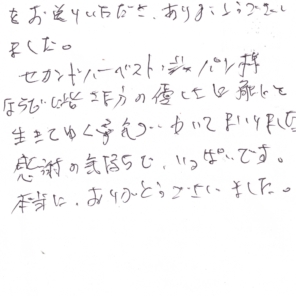 をお送りいただき、ありがとうござい
ました。
セカンドハーベスト・ジャパン様
ならびに皆さま方の優しさに触れて
生きてゆく勇気がわいてまいりました
感謝の気持ちで、いっぱいです。
本当に、ありがとうございました。